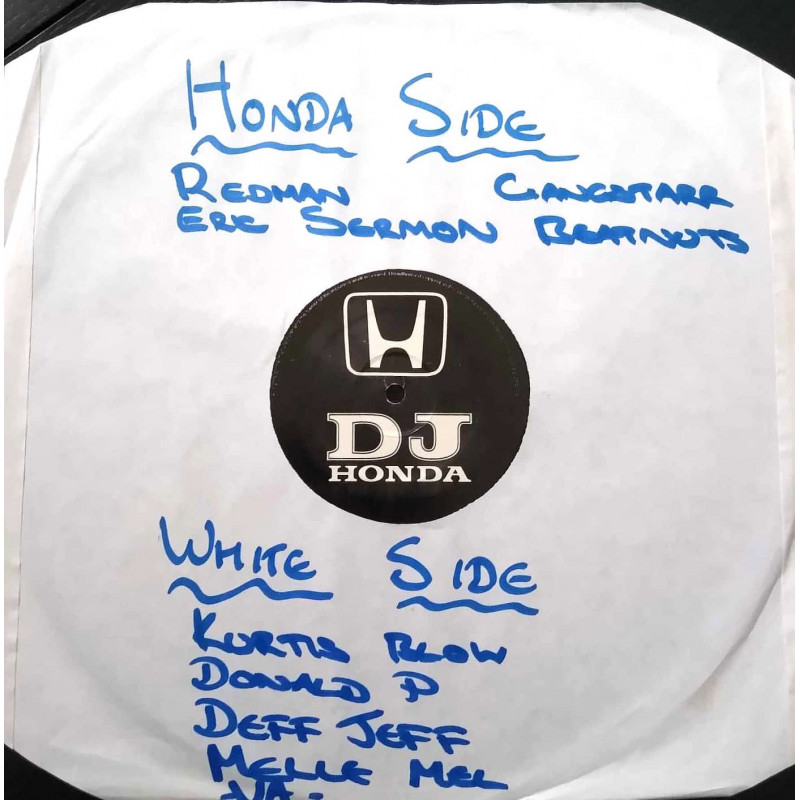 HONDA SIDE
REDMAN GANGSTARR
ERIC SERMON BEATNUTS
DJ
HONDA
WHITE SIDE
KURTIS BLOW
DONALD D
DEFF JEFF
MELLE MEL